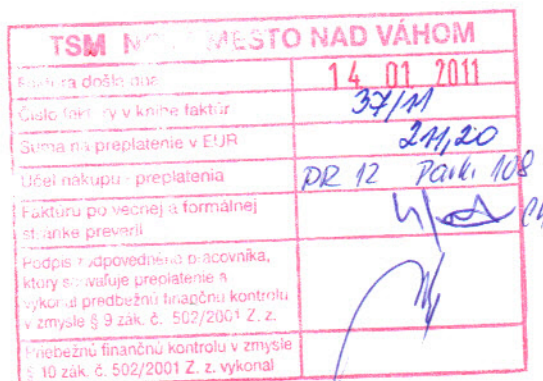 TSM NOVÉ MESTO NAD VÁHOM
Faktúra došla dňa 14 01 2011
Číslo faktúry v knihe faktúr 37/11
Suma na preplatenie v EUR 211,20
Účel nákupu - preplatenia DR 12 Park. 108
Faktúru po vecnej a formálnej
stránke preveril
Podpis zodpovedného pracovníka,
ktorý schvaľuje preplatenie a
vykonal predbežnú finančnú kontrolu
v zmysle § 9 zák. č. 502/2001 Z. z.
Priebežnú finančnú kontrolu v zmysle
§ 10 zák. č. 502/2001 Z. z. vykonal